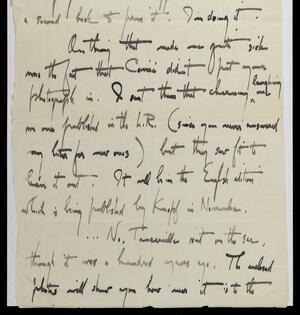 a second book to prove it. I'm doing it.
One thing that made me quite sick
was the fact that Comis didnt put your
photograph in. I sent them that charming laughing one
we once published in the L.R. (since you never answered
my letter for new ones) but they saw fit to
leave it out. It will be in the English edition
which is being published by Knopf in November.
... No, Tancarville isnt on the sea,
though it was a hundred years ago. The enclosed
photos will show you how near it is to the